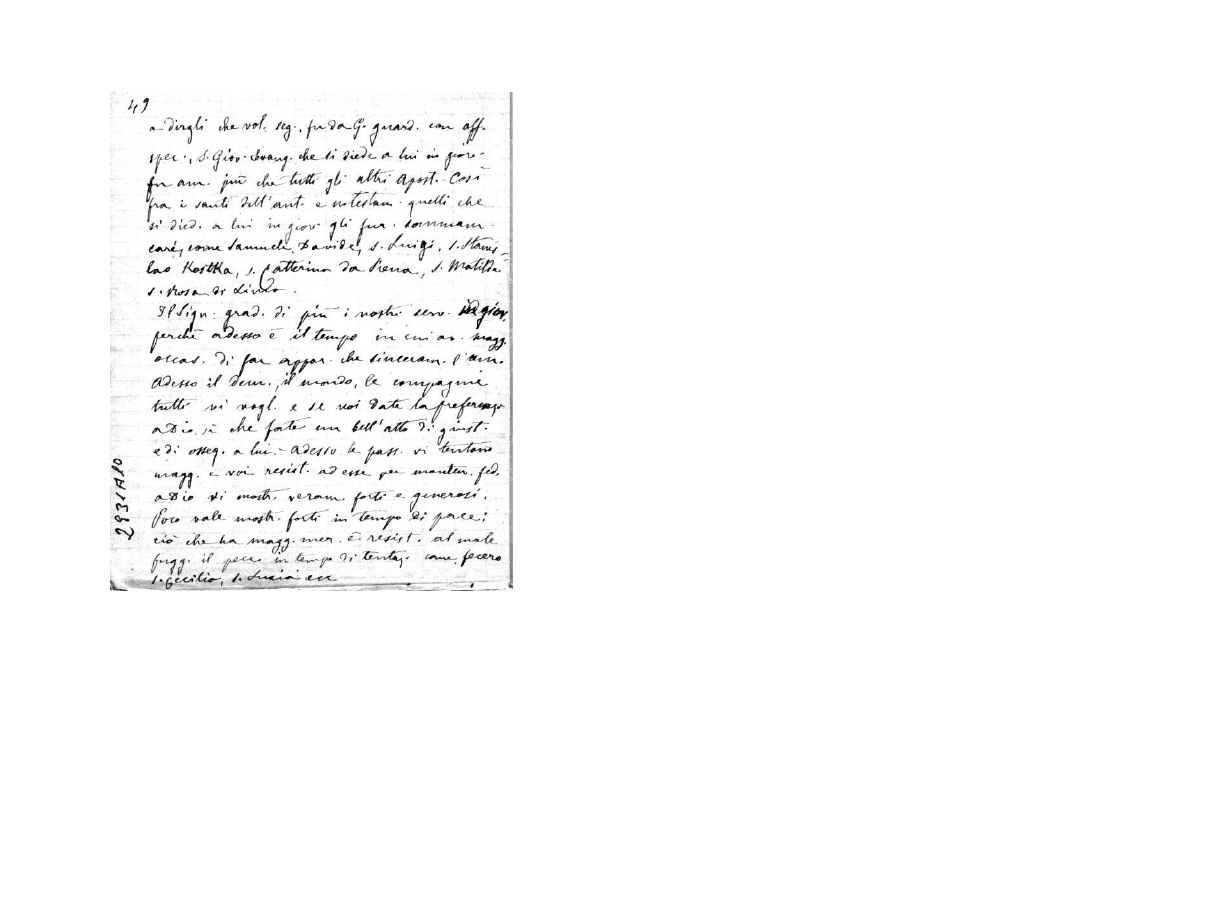 49
a dirgli che vol. seg., fu da G. guard. con aff.
spec., S. Giov. Evang. che si diede a lui in giov.
fu am. più che tutti gli altri Apost. - Così
fra i santi dell'ant. e n. testam. quelli che
si died. a lui in giov. gli fur. sommam.
cari, come Samuele, Davide, s. Luigi, s. Stanis-
lao Kostka, s. Catterina da Siena, s. Matilde
s. Rosa di Lima.
Il Sign. grad. di più i vostri serv. in giov.
perchè adesso è il tempo in cui av. magg.
occas. di far appar. che sinceram. l'am.
Adesso il dem., il mondo, le compagnie
tutti vi vogl. e se voi date la preferenza
a Dio, sì che fate un bell'atto di giust.
e di osseq. a lui. - Adesso le pass. vi tentano
magg. e voi resist. ad esse per manten. fed.
a Dio vi mostr. veram. forti e generosi.
Poco vale mostr. forti in tempo di pace;
ciò che ha magg. mer. è resist. al male
fugg. il pecc. in tempo di tentaz. come fecero
s. Cecilia, s. Lucia ecc
2931A10